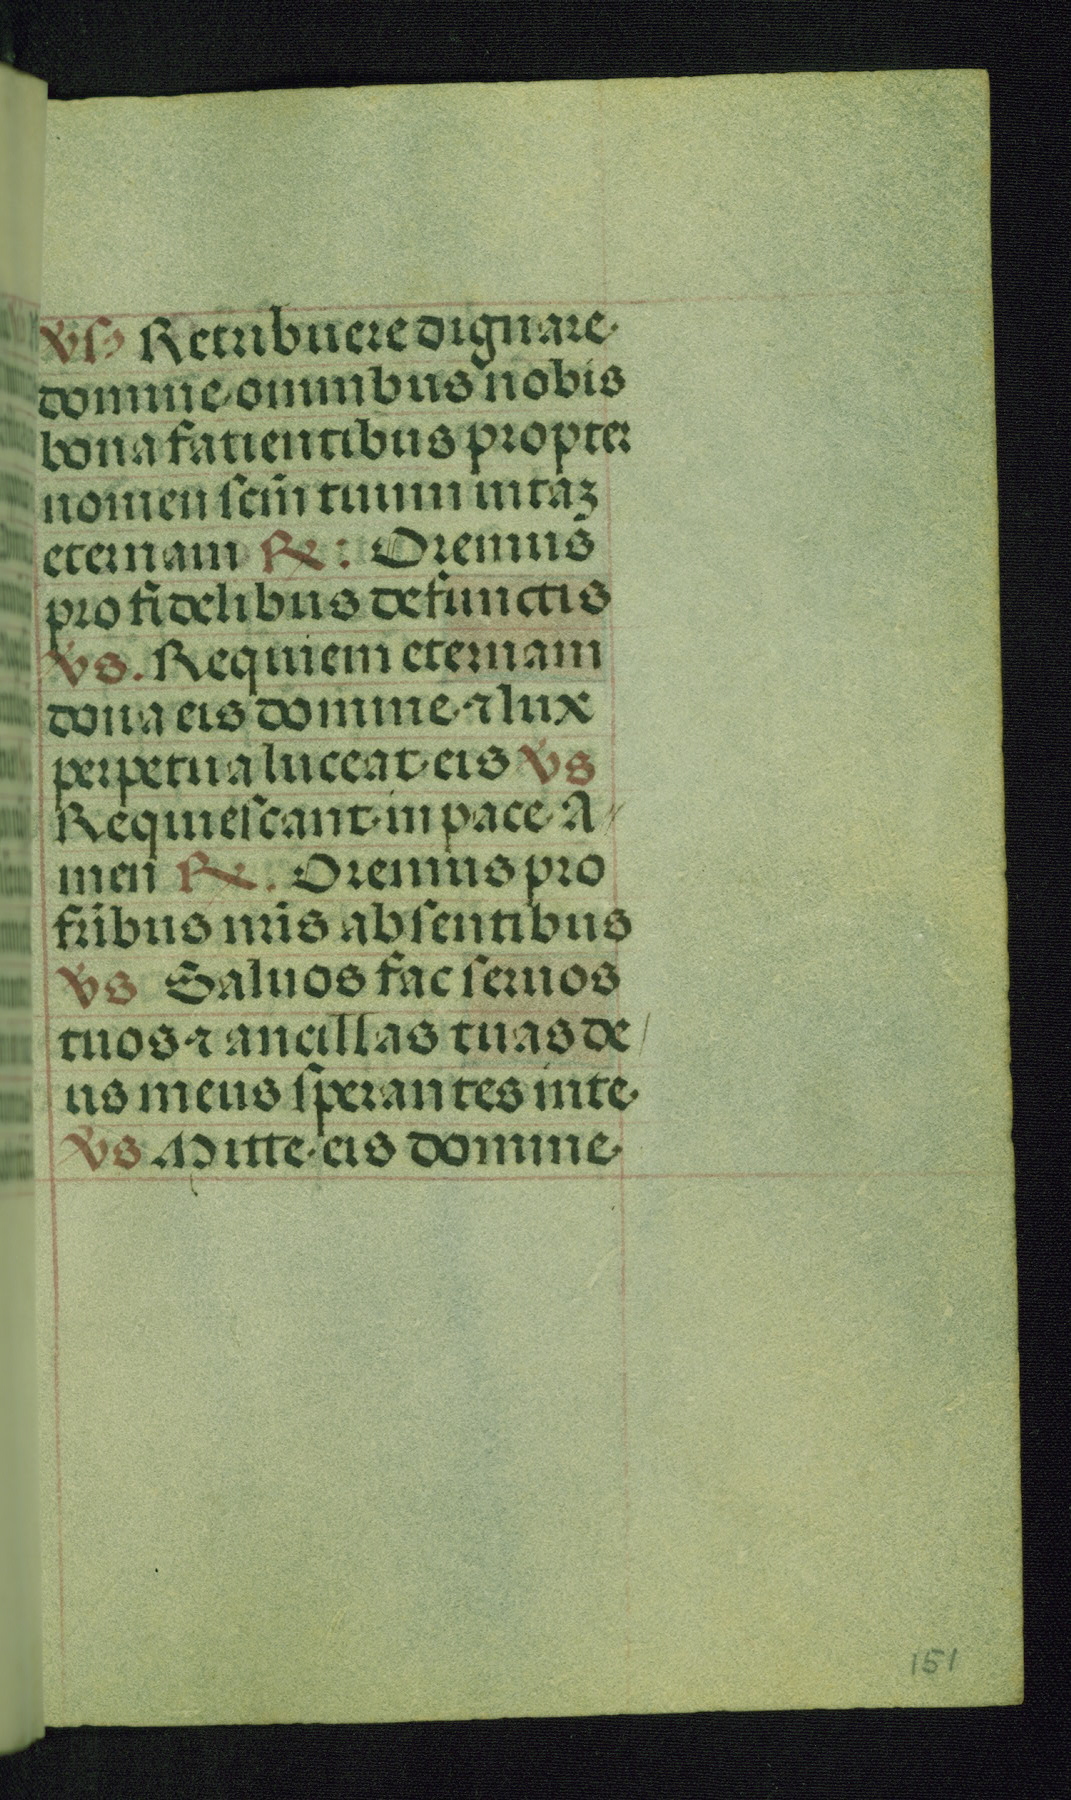 vs Retribuere dignare
domine omnibus nobis
bona fatientibus propter
nomen scm̄ tuum uitaʒ
eternam R: Oremus
pro fidelibus defunctis
vs. Requiem eternam
dona eis domine ⁊ lux
perpetua luceat eis vs
Requiescant in pace A//
men R. Oremus pro
frībus nrīs absentibus
vs Saluos fac seruos
tuos ⁊ ancillas tuas de/
us meus sperantes in te.
vs Mitte eis domine
151